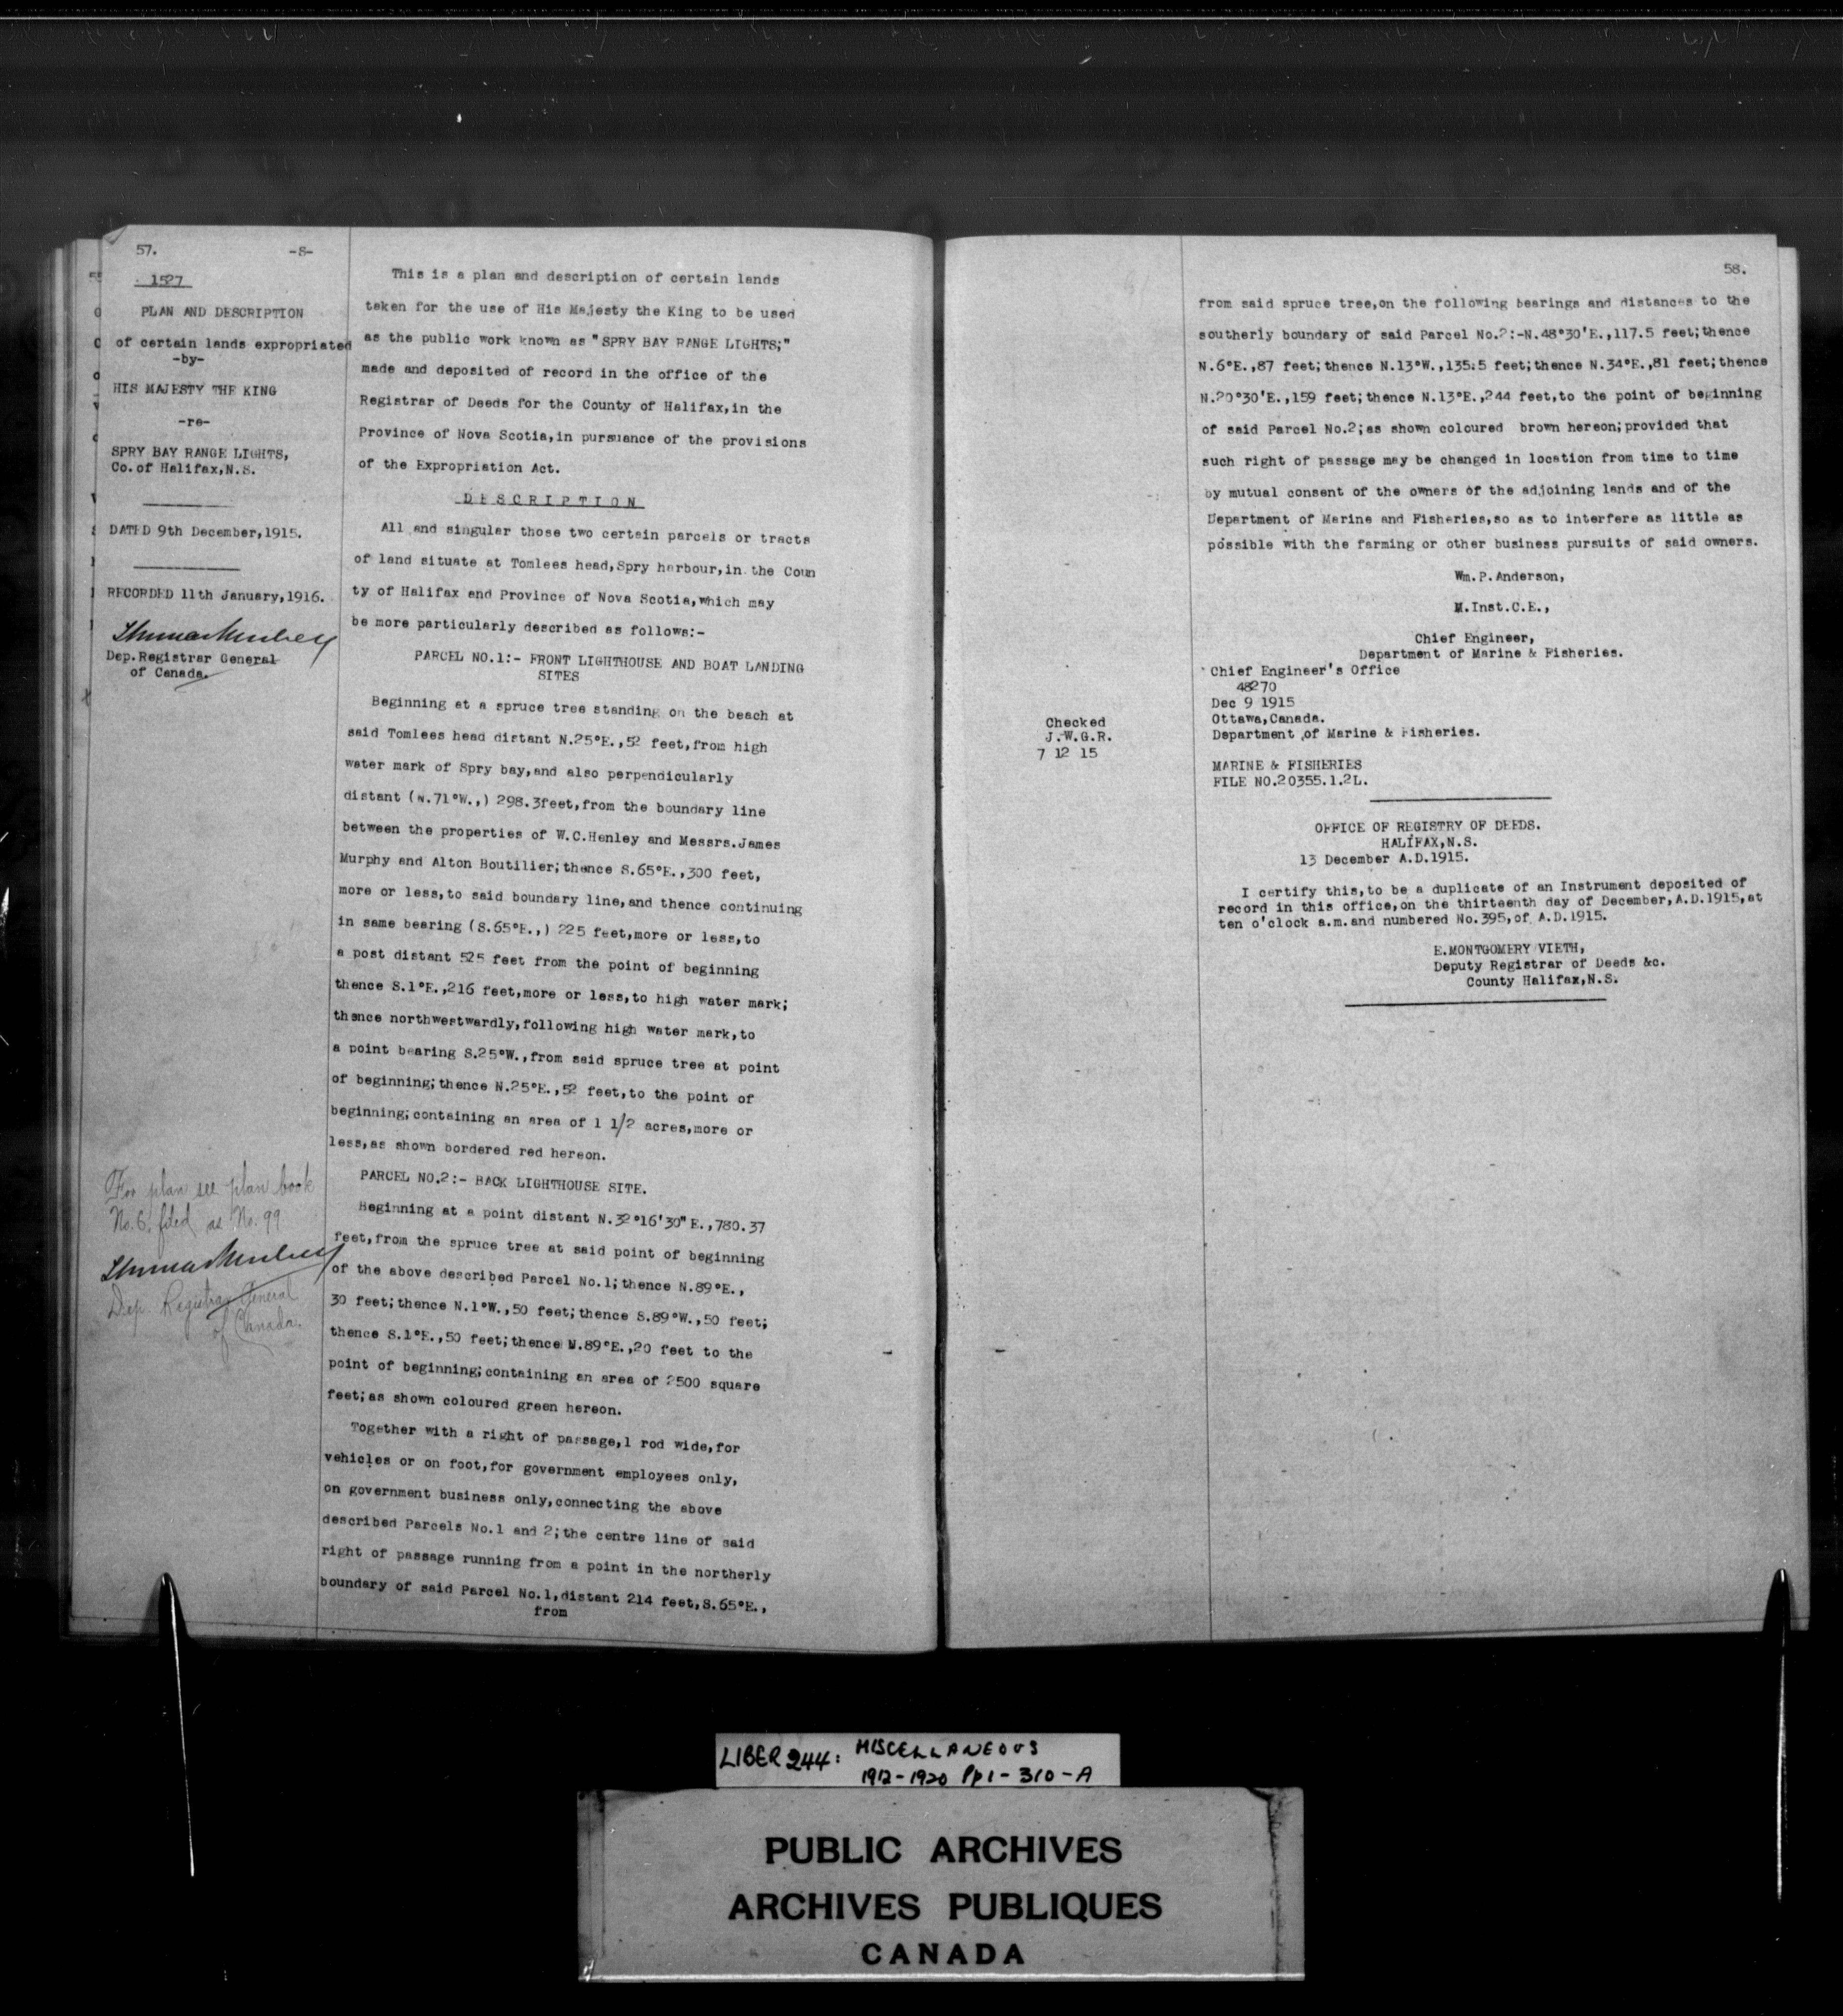 57.
-S-
1527
PLAN AND DESCRIPTION
of certain lands expropriated
-by-
HIS MAJESTY THE KING
-re-
SPRY BAY RANGE LIGHTS,
Co.of Halifax,N.S.
DATED 9th December,1915.
RECORDED 11th January,1916.
Dep.Registrar General
of Canada.
For plan see plan book
No. 6. filed as No. 99
Dep. Registrar General
of Canada.
This is a plan and description of certain lands
taken for the use of His Majesty the King to be used
as the public work known as "SPRY BAY RANGE LIGHTS;"
made and deposited of record in the office of the
Registrar of Deeds for the County of Halifax,in the
Province of Nova Scotia,in pursuance of the provisions
of the Expropriation Act.
DESCRIPTION
All and singular those two certain parcels or tracts
of land situate at Tomlees head,Spry harbour,in the Coun
ty of Halifax and Province of Nova Scotia,which may
be more particularly described as follows:-
PARCEL NO.1:- FRONT LIGHTHOUSE AND BOAT LANDING
SITES
Beginning at a spruce tree standing on the beach at
said Tomlees head distant N.25°E.,52 feet,from high
water mark of Spry bay,and also perpendicularly
distant (N.71°W.,) 298.3feet,from the boundary line
between the properties of W.C.Henley and Messrs.James
Murphy and Alton Boutilier;thence S.65°E.,300 feet,
more or less,to said boundary line,and thence continuing
in same bearing (S.65°E.,) 225 feet,more or less,to
a post distant 525 feet from the point of beginning
thence S.1°E.,216 feet,more or less,to high water mark;
thence northwestwardly,following high water mark,to
a point bearing S.25°W.,from said spruce tree at point
of beginning;thence N.25°E.,52 feet,to the point of
beginning;containing an area of 1 1/2 acres,more or
less,as shown bordered red hereon.
PARCEL NO.2:- BACK LIGHTHOUSE SITE.
Beginning at a point distant N.32°16'30"E.,780.37
feet,from the spruce tree at said point of beginning
of the above described Parcel No.1;thence N.89°E.,
30 feet;thence N.1°W.,50 feet;thence S.89°W.,50 feet;
thence S.1°E.,50 feet;thence N.89°E.,20 feet to the
point of beginning;containing an area of 2500 square
feet;as shown coloured green hereon.
Together with a right of passage,1 rod wide,for
vehicles or on foot,for government employees only,
on government business only,connecting the above
described Parcels No.1 and 2;the centre line of said
right of passage running from a point in the northerly
boundary of said Parcel No.1,distant 214 feet,S.65°E.,
from
58.
from said spruce tree,on the following bearings and distances to the
southerly boundary of said Parcel No.2:-N.48°30'E.,117.5 feet;thence
N.6°E.,87 feet;thence N.13°W.,135.5 feet;thence N.34°E.,81 feet;thence
N.20°30'E.,159 feet;thence N.13°E.,244 feet,to the point of beginning
of said Parcel No.2;as shown coloured brown hereon;provided that
such right of passage may be changed in location from time to time
by mutual consent of the owners of the adjoining lands and of the
Department of Marine and Fisheries,so as to interfere as little as
possible with the farming or other business pursuits of said owners.
Wm.P.Anderson,
M.Inst.C.E.,
Chief Engineer,
Department of Marine & Fisheries.
Chief Engineer's Office
48270
Dec 9 1915
Ottawa,Canada.
Department of Marine & Fisheries.
MARINE & FISHERIES
FILE NO.20355.1.2L.
Checked
J.W.G.R.
7 12 15
OFFICE OF REGISTRY OF DEEDS.
HALIFAX,N.S.
13 December A.D.1915.
I certify this,to be a duplicate of an Instrument deposited of
record in this office,on the thirteenth day of December,A.D.1915,at
ten o'clock a.m.and numbered No.395,of A.D.1915.
E.MONTGOMERY VIETH,
Deputy Registrar of Deeds &c.
County Halifax,N.S.
LIBER 244: MISCELLANEOUS
1912-1920 Pp 1-310-A
PUBLIC ARCHIVES
ARCHIVES PUBLIQUES
CANADA